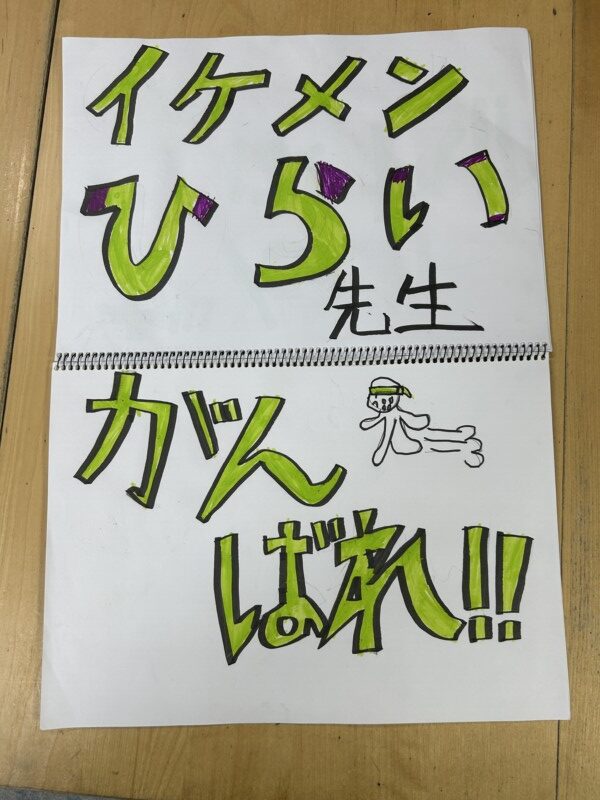 イケメン
ひらい
先生
がん
ばれ!!